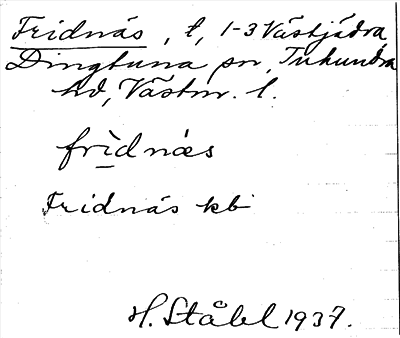 Fridnäs, l, 1-3 Västjädra
Dingtuna sn, Tuhundra
hd, Västm. l.
frìdnäs
Fridnäs kbi
H. Ståhl 1937.